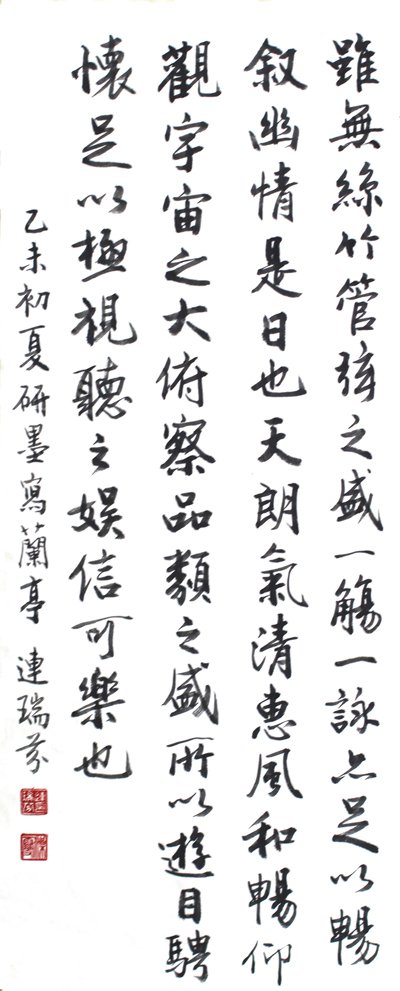 雖無絲竹管弦之盛一觴一詠亦足以暢
叙幽情是日也天朗氣清惠風和暢仰
觀宇宙之大俯察品類之盛所以遊目騁
懷足以極視聽之娱信可樂也
乙未初夏研墨寫蘭亭 連瑞芬